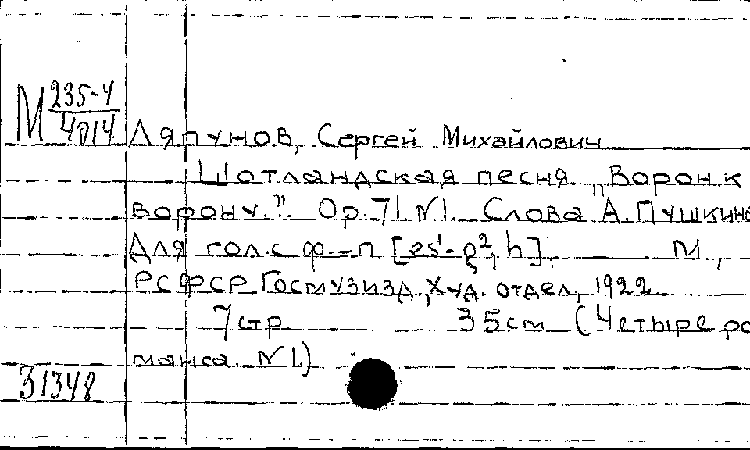 М 235-4/4014
Ляпунов, Сергей Михайлович
Шотландская песня „Ворон к
ворону." Op. 71. №1. Слова А. Пушкина
Для гол. с ф-п [es¹-g², h] М.,
РСФСР Госмузизд, Худ. отдел, 1922.
7 стр. 35 см (Четыре ро
манса №1.)
31348